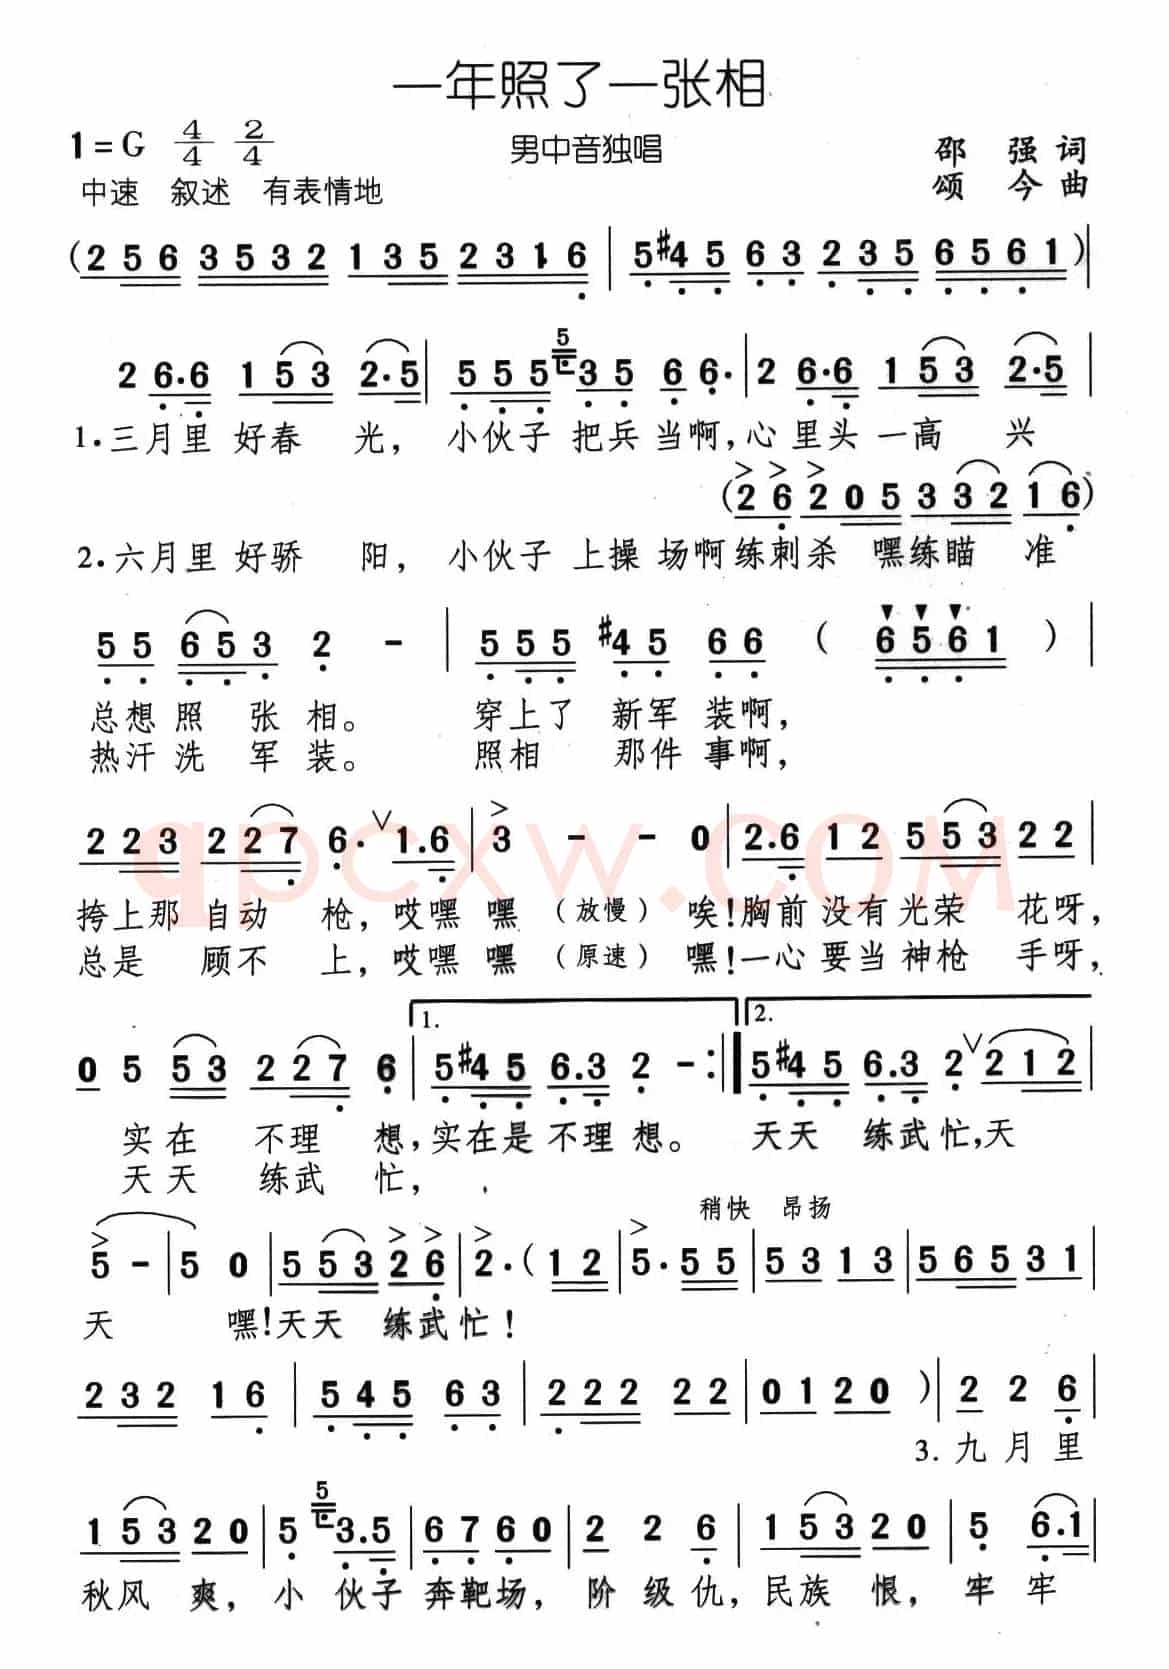 一年照了一张相
1=G 4/4 2/4 男中音独唱 邵强词
中速 叙述 有表情地 颂今曲
(2 5 6 3 5 3 2 1 3 5 2 3 1 6 | 5 #4 5 6 3 2 3 5 6 5 6 1)|
2 6·6 1 5 3 2·5 | 5 5 5 5 3 5 6 6· | 2 6·6 1 5 3 2·5 |
1.三月里 好春 光, 小伙子 把兵 当啊,心里头 一高 兴
(2 6 2 0 5 3 3 2 1 6)
2.六月里 好骄 阳, 小伙子 上操 场啊练刺杀 嘿练瞄 准
5 5 6 5 3 2 - | 5 5 5 #4 5 6 6 (6 5 6 1) |
总想 照 张 相。 穿上了 新军 装啊,
热汗 洗 军 装。 照相 那件 事啊,
2 2 3 2 2 7 6· ∨ 1·6 | 3 - - 0 | 2·6 1 2 5 5 3 2 2 |
挎上那 自动 枪,哎嘿 嘿 (放慢) 唉!胸前 没有 光荣 花呀,
总是 顾不 上,哎嘿 嘿 (原速) 嘿!一心 要当 神枪 手呀,
0 5 5 3 2 2 7 6 | 1. 5 #4 5 6·3 2 - :| 2. 5 #4 5 6·3 2 ∨ 2 1 2 |
实在 不理 想,实在是 不理 想。 天天 练武 忙,天
天天 练武 忙,
稍快 昂扬
5 - | 5 0 | 5 5 3 2 6 | 2· (1 2 | 5· 5 5 | 5 3 1 3 | 5 6 5 3 1 |
天 嘿!天天 练武 忙!
2 3 2 1 6 | 5 4 5 6 3 | 2 2 2 2 2 | 0 1 2 0 )| 2 2 6 |
3.九月里
1 5 3 2 0 | 5 5 3·5 | 6 7 6 0 | 2 2 6 | 1 5 3 2 0 | 5 6·1 |
秋风 爽, 小 伙子 奔靶场, 阶 级仇,民族 恨, 牢 牢
qpcxw.com